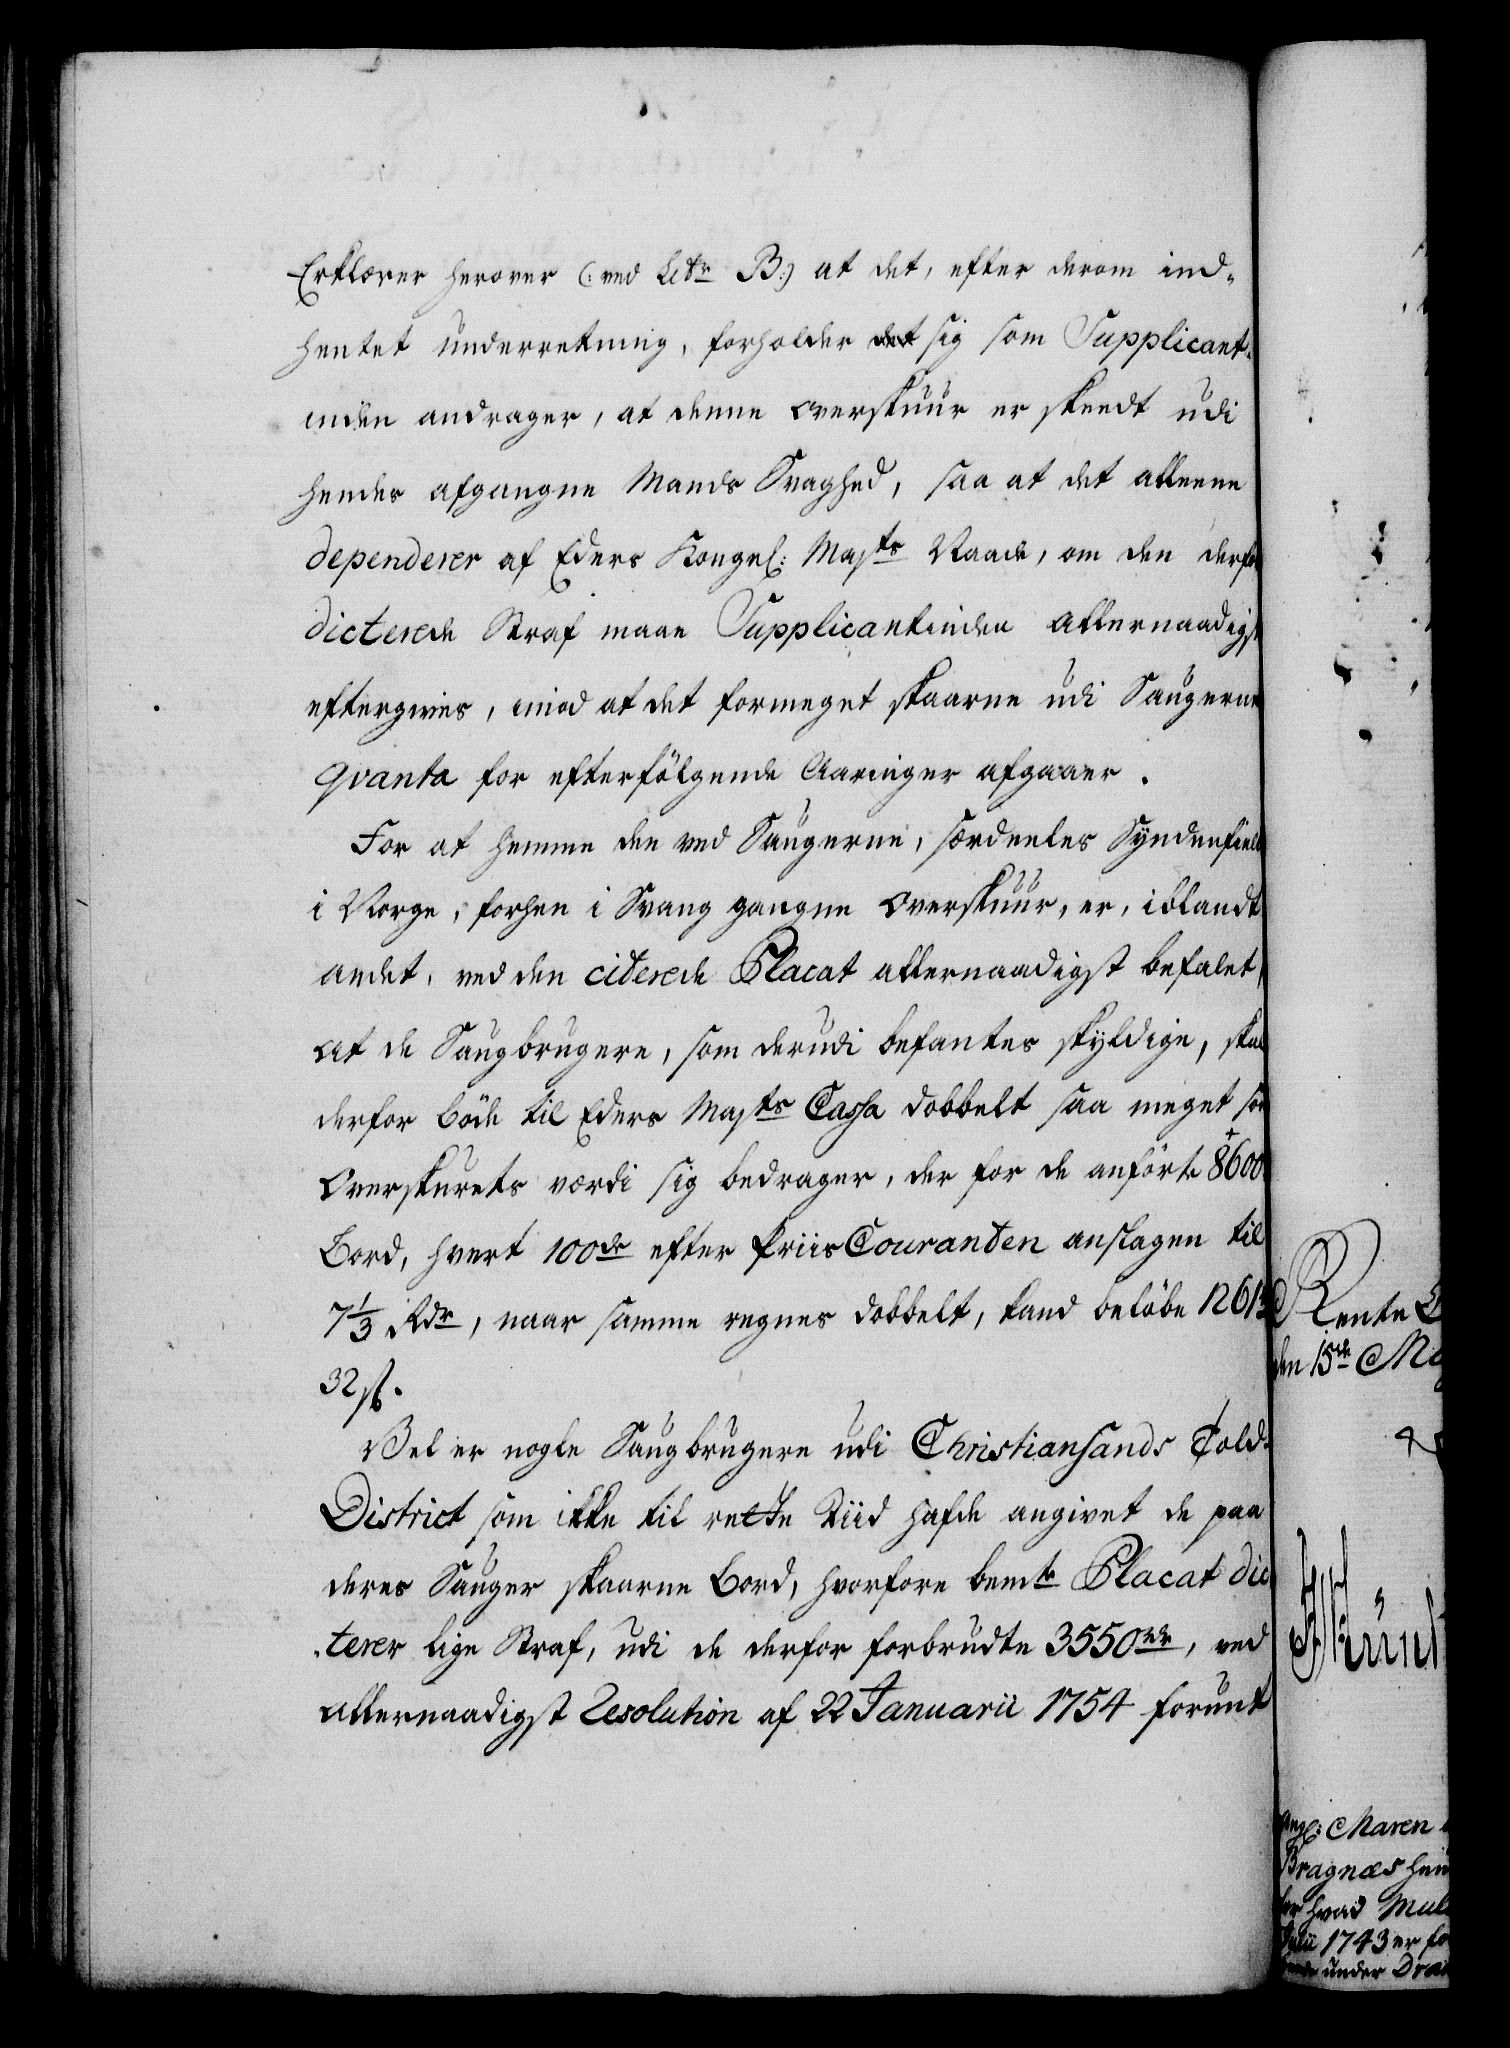 Erklærer herover (: ved Litr B:) at det, efter derom ind-
hentet underretning, forholder det sig som Supplicant-
inden andrager, at denne Overskuur er skeedt udi
hendes afgangne Mands Svaghed, saa at det alleene
dependerer af Eders Kongel: Majts Naade, om den derfor
dicterede Straf maae Supplicantinden allernaadigst
eftergives, imod at det formeget skaarne udi Saugernes
qvanta for efterfölgende Aaringer afgaaer.
For at hemme den ved Saugerne, særdeeles Syndenfields
i Norge, forhen i Svang gangne Overskuur, er, iblandt
andet, ved den citerede Placat allernaadigst befalet,
at de Saugbrugere, som derudi befantes skyldige, skal
derfor böde til Eders Majts Cassa dobbelt saa meget som
Overskurets værdi sig bedrager, der for de anförte 8600
Bord, hvert 100de efter Priis Couranten anslagen til
7 1/3 Rdr, naar samme regnes dobbelt, kand belöbe 1261
32 s.
Vel er nogle Saugbrugere udi Christiansands Told-
District som ikke til rette Tiid hafde angivet de paa
deres Sauger skaarne Bord, hvorfore bemte Placat dic-
terer lige Straf, udi de derfor forbrudte 3550 rdr, ved
allernaadigst Resolution af 22 Januarii 1754 forunt
Rente
den 15de
Maren
Bragnæs
hvad
1743 er
under